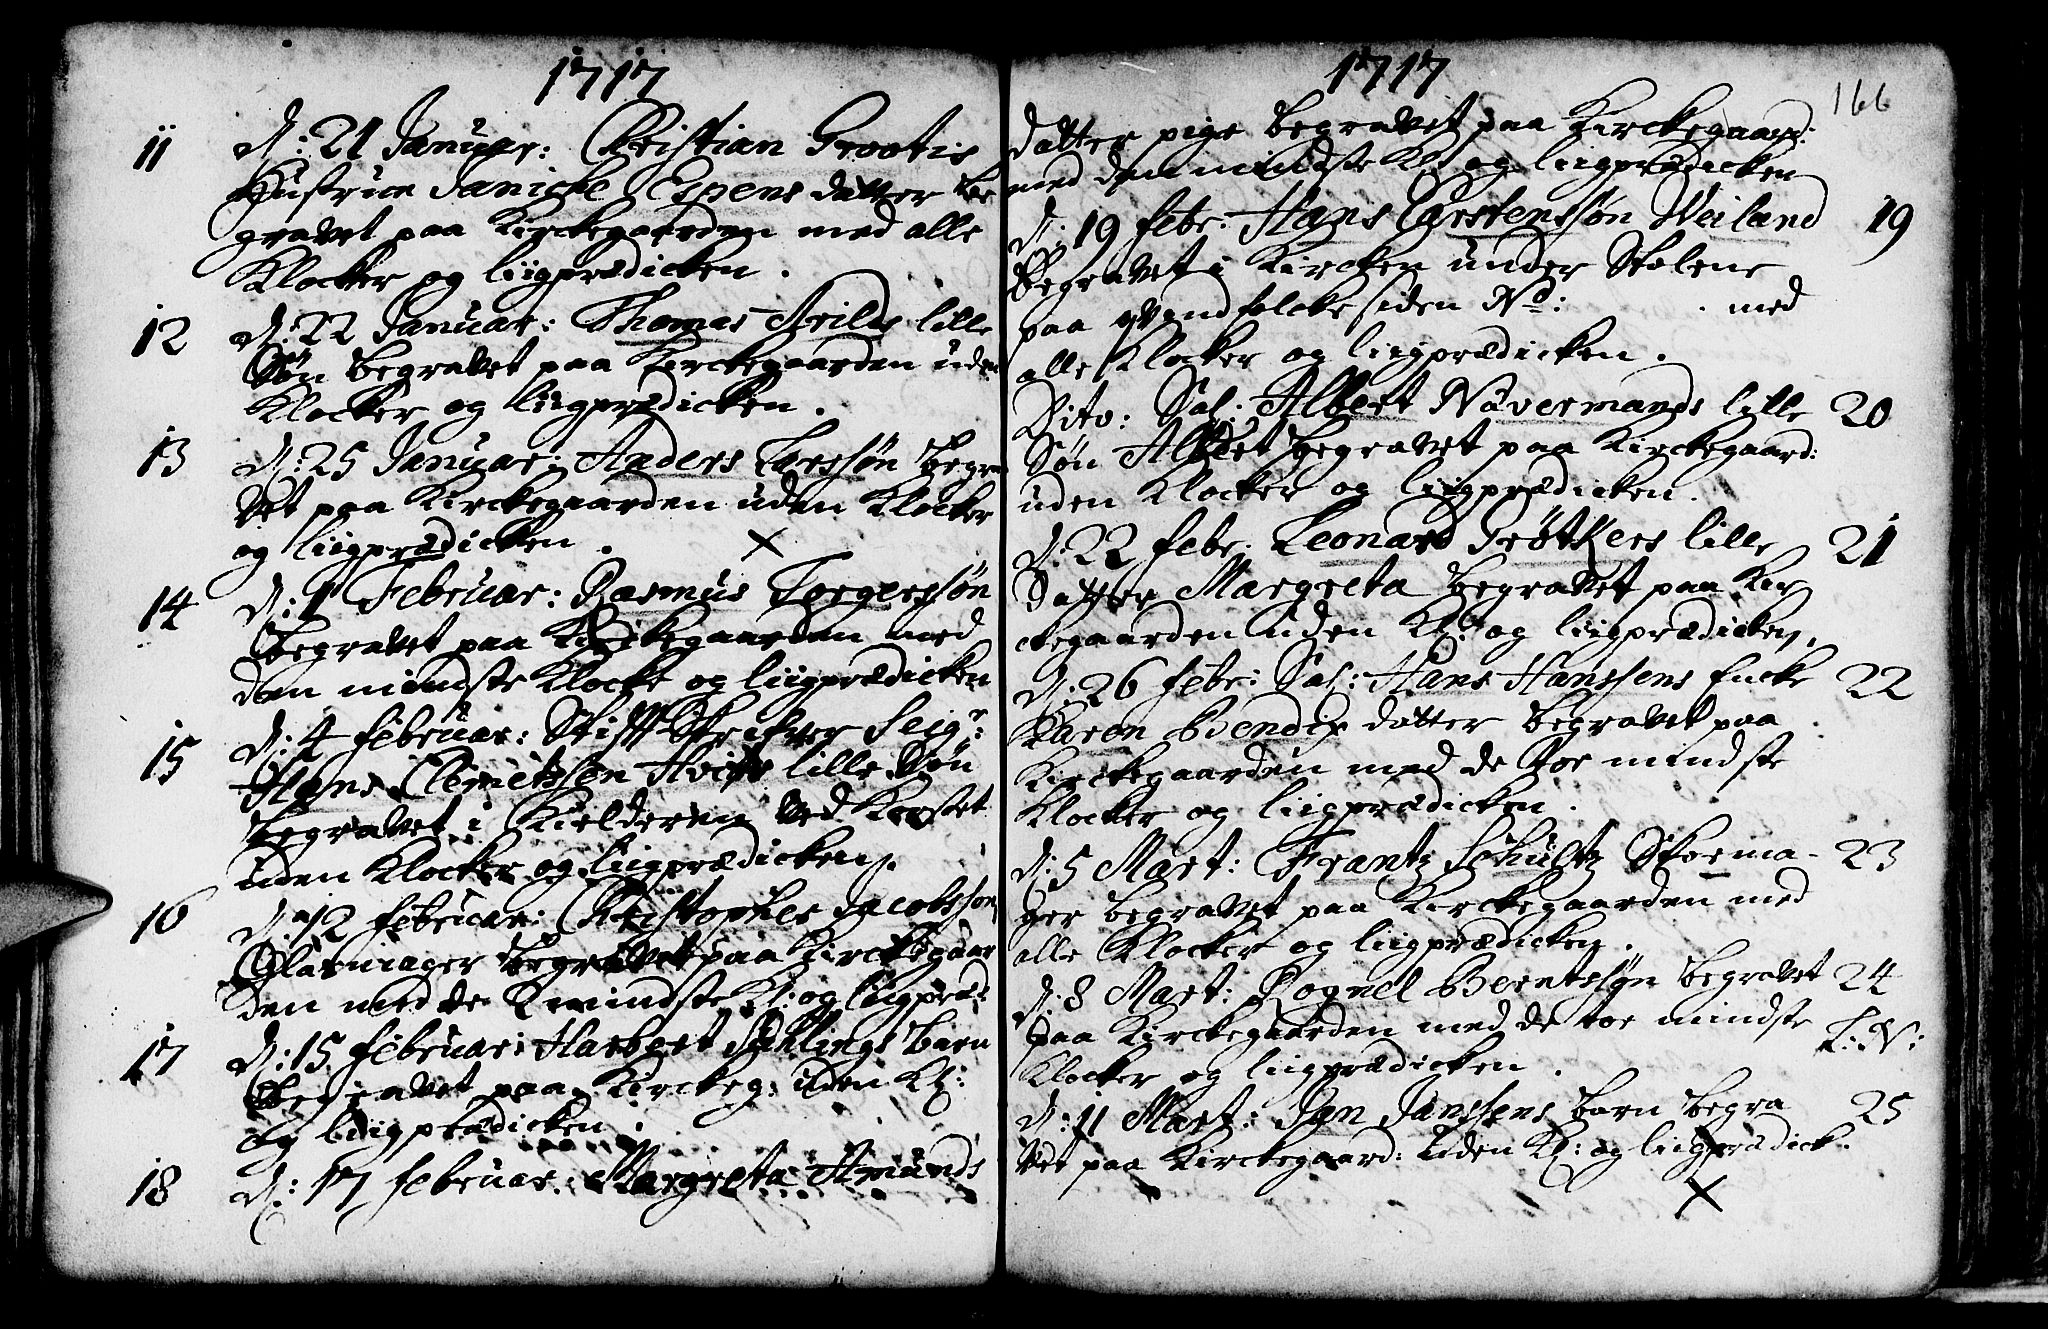 1717
11 D: 21 Januar: Christian Grootis
Hustrue Janicke Espens datter be
gravet paa Kirckegaarden med alle
Klocker og liigprædicken.
12 D: 22 Januar: Thomas Arilds lille
Søn begravet paa Kirckegaarden uden
Klocker og liigprædicken.
13 D: 25 Januar: Anders Larssøn begra
vet paa Kirckegaarden uden Klocker
og liigprædicken. ×
14 D: 1 Februar: Rasmus Torgerssøn
begravet paa Kirckegaarden med
den mindste Klocke og liigprædicken
15 D: 4 februar: Stifft Skrifver Seigr
Hans Clemetssen Hvids lille Søn
begravet i Kielderen ved Koret
uden Klocker og liigprædicken.
16 D: 12 februar: Christopher Jacobsson
Glarmager begravet paa Kirckegaar
den med de 2 mindste Kl: og liigpræd:
17 D: 15 februar: Harbert Sehlings barn
begravet paa Kirckeg: uden Kl:
og liigprædicken.
18 D: 17 februar: Margreta Amunds
1717
166
datter pige begravet paa Kirckegaard:
med den mindste Kl: og liigprædicken
D: 19 febr: Hans Carstenssøn Weiland 19
Begravet i Kircken under Stolene
paa qvindfolcke siden No: . med
alle Klocker og liigprædicken.
Dito: Sal: Albert Navermands lille 20
Søn Albert begravet paa Kirckegaard:
uden Klocker og liigprædicken.
D: 22 febr. Leonard Trötkers lille 21
Datter Margreta begravet paa Kir
ckegaarden uden Kl: og liigprædicken.
D: 26 febr: Sal: Hans Hanssens Encke 22
Karen Bendix datter begravet paa
Kirckegaarden med de toe mindste
Klocker og liigprædicken.
D: 5 Mart: Frantz Schultz Skoema- 23
ger begravet paa Kirckegaarden med
alle Klocker og liigprædicken.
D: 8 Mart: Rognel Berntssøn begravet 24
paa Kirckegaarden med de toe mindste L: N:
Klocker og liigprædicken.
D: 11 Mart: Jan Janssens barn begra 25
vet paa Kirckegaard: uden Kl: og liigprædick:
×